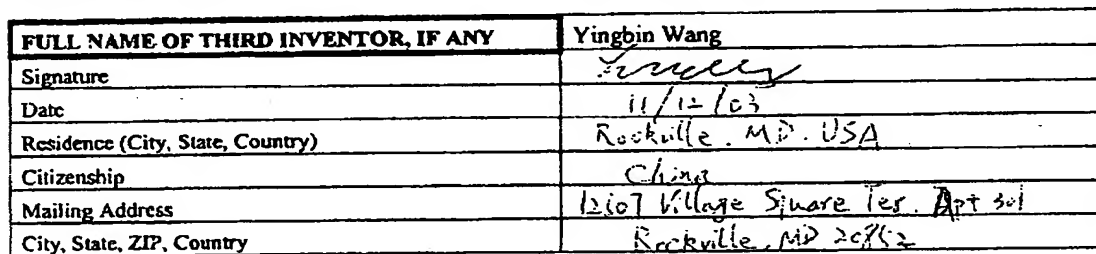 FULL NAME OF THIRD INVENTOR, IF ANY Yingbin Wang
Signature
Date 11/12/03
Residence (City, State, Country) Rockville. MD. USA
Citizenship China
Mailing Address Village Square Ter. Apt 301
City, State, ZIP, Country Rockville, MD 20852